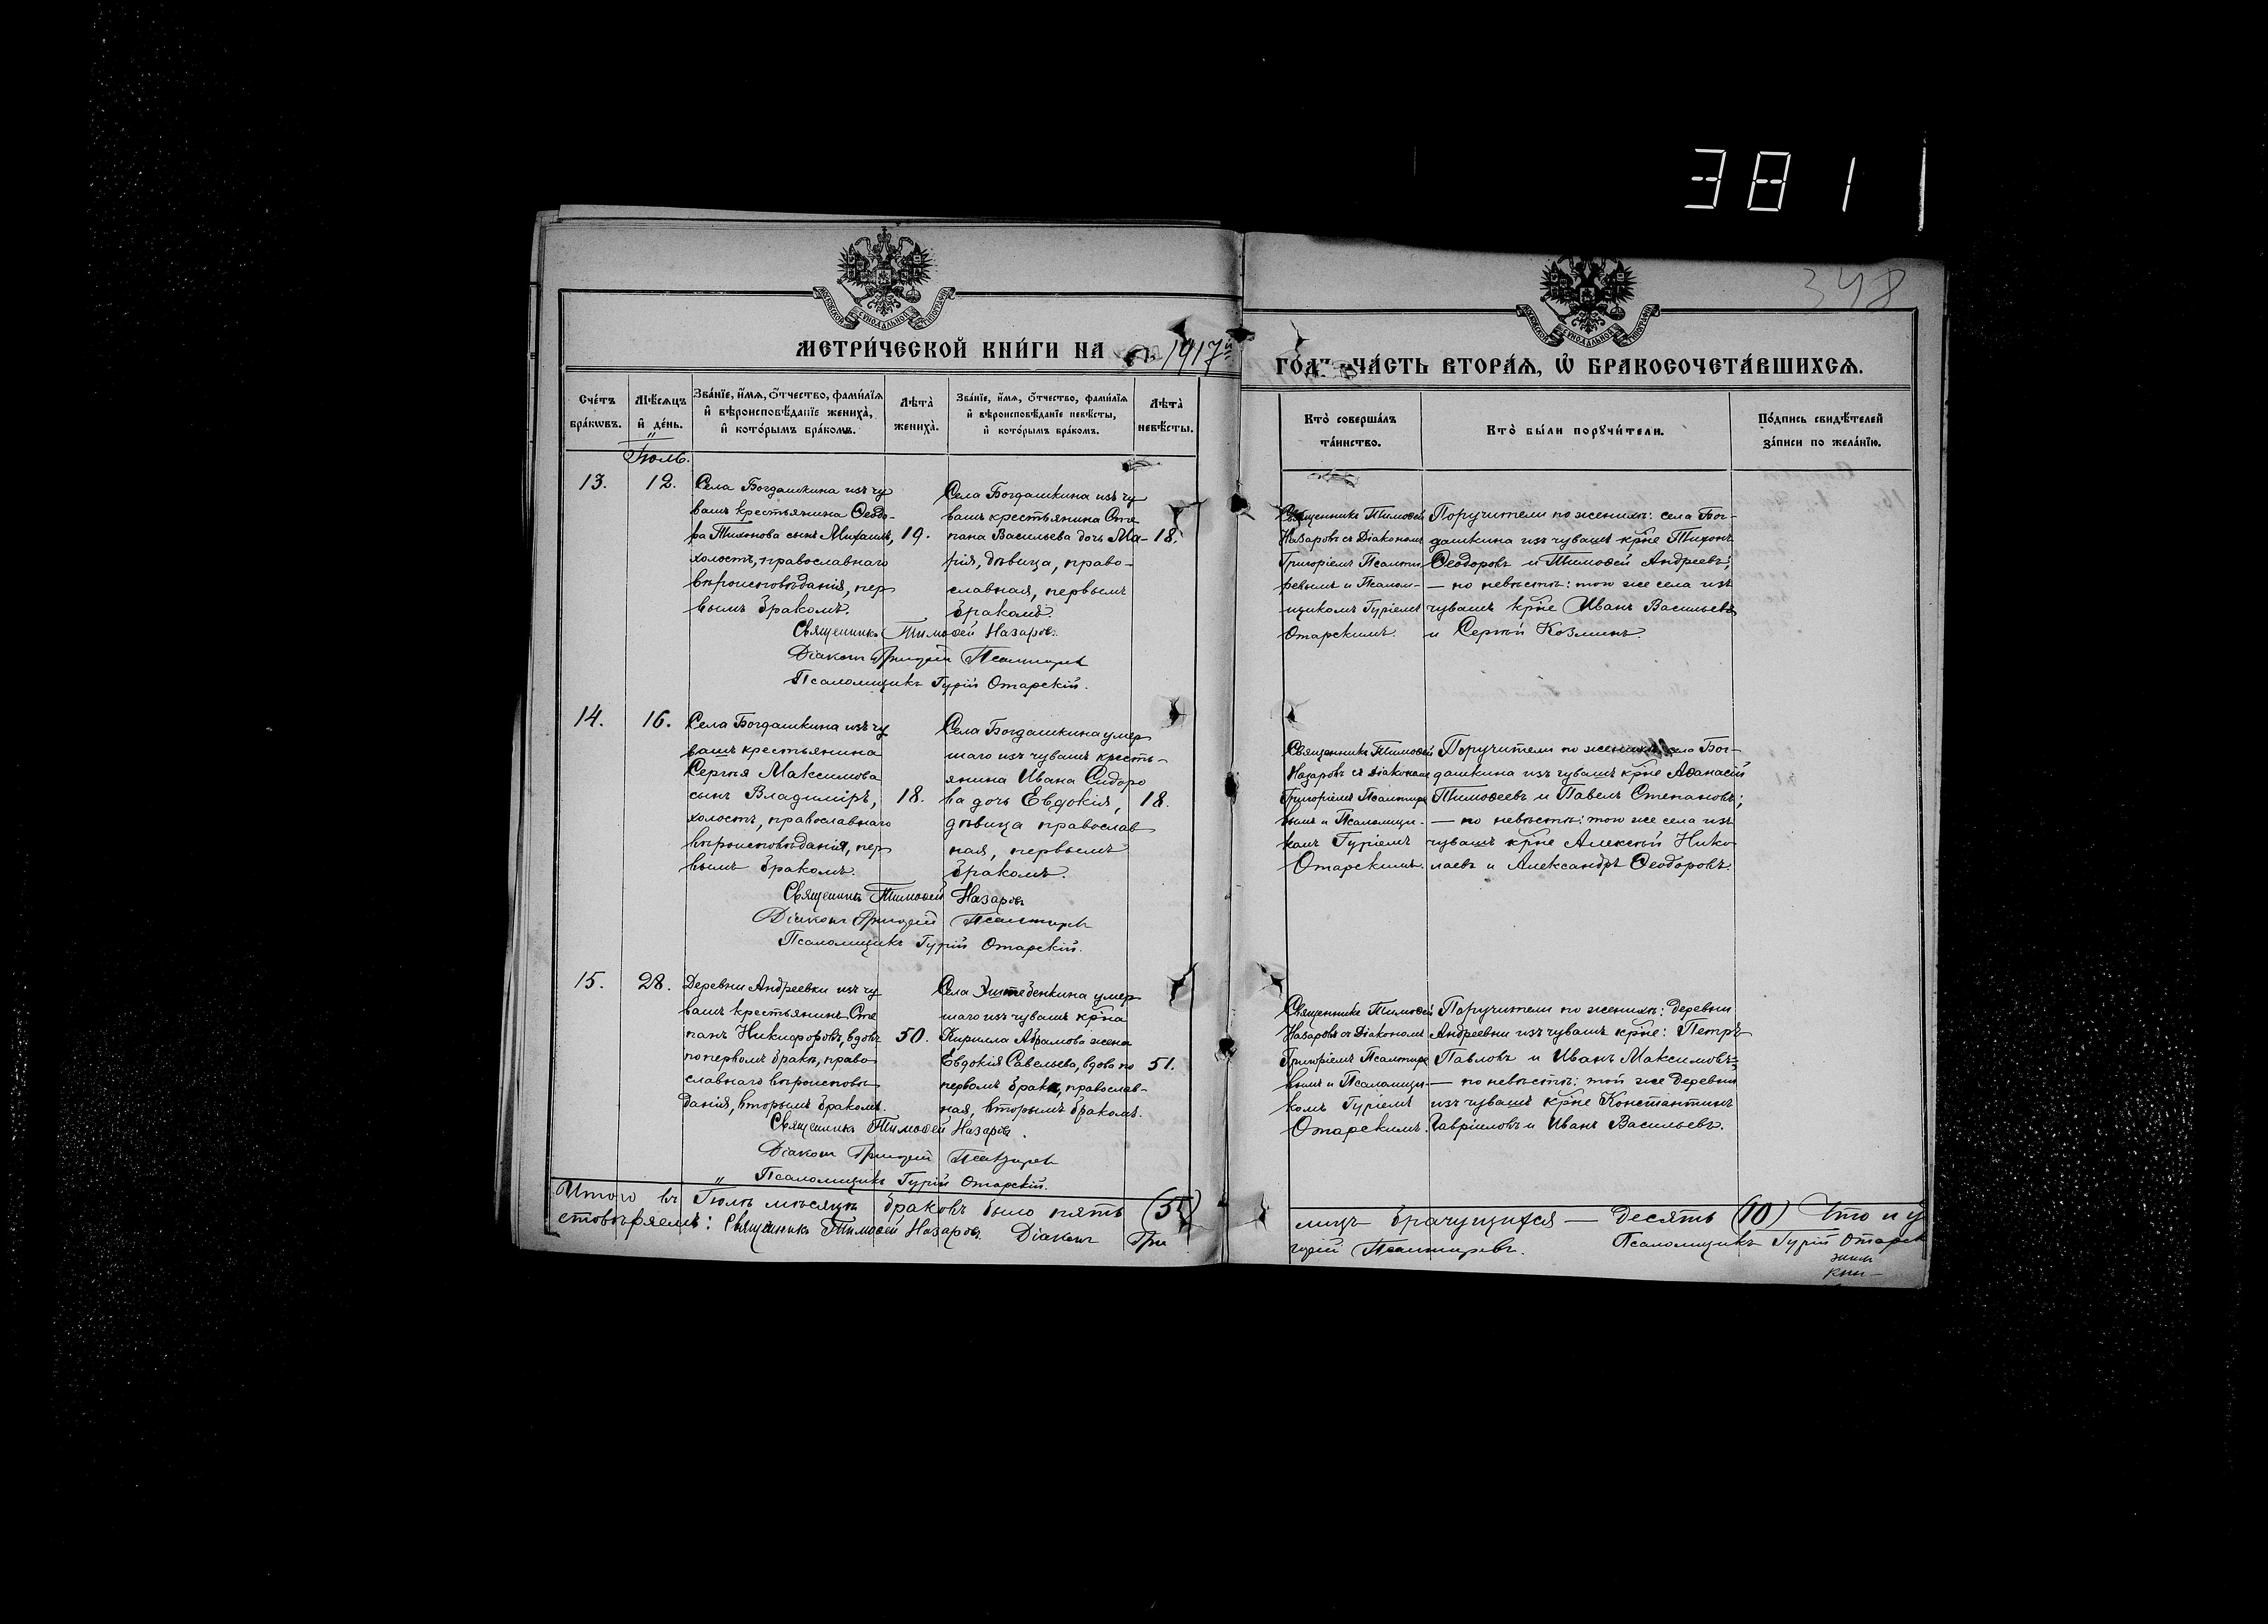 3811
348
МЕТРИ́ЧЕСКОЙ КНИ́ГИ НА 1917
ГОДЪ ЧА́СТЬ ВТОРА́Я, Ѿ БРАКОСОЧЕТА́ВШИХСЯ.
Сче́тъ бра́кѡвъ.
Мѣ́сяцъ и҆ де́нь.
Зва́нїе, и҆́мя, ѻ҆́тчество, фами́лїя и҆ вѣроисповѣ́данїе жениха̀, и҆ кото́рымъ бра́комъ.
Лѣта̀ жениха̀.
Зва́нїе, и҆́мя, ѻ҆́тчество, фами́лїя и҆ вѣроисповѣ́данїе невѣ́сты, и҆ кото́рымъ бра́комъ.
Лѣта̀ невѣ́сты.
Кто̀ соверша́лъ та́инство.
Кто̀ бы́ли порꙋчи́тели.
По́дпись свидѣ́телей за́писи по жела́нїю.
Іюль.
13.
12.
Села Богдашкина изъ чу
вашъ крестьянина Ѳеодо-
ра Тихонова сынъ Михаилъ,
холостъ, православнаго
вѣроисповѣданія, пер
вымъ бракомъ.
19.
Села Богдашкина изъ чу
вашъ крестьянина Сте
пана Васильева дочь Ма-
рія, дѣвица, право-
славная, первымъ
бракомъ.
18.
Священникъ Тимоѳей
Назаровъ съ Діакономъ
Григоріемъ Псалти
ревымъ и Псалом-
щикомъ Гуріемъ
Отарскимъ.
Поручители по женихѣ: села Бог-
дашкина изъ чувашъ кр̃не Тихонъ
Ѳеодоровъ и Тимоѳей Андреевъ;
— по невѣстѣ: того же села изъ
чувашъ кр̃не Иванъ Васильевъ
и Сергѣй Козминъ.
Священникъ Тимоѳей Назаровъ.
Діаконъ Григорій Псалтиревъ
Псаломщикъ Гурій Отарскій.
14.
16.
Села Богдашкина изъ чу
вашъ крестьянина
Сергѣя Максимова
сынъ Владиміръ,
холостъ, православнаго
вѣроисповѣданія, пер
вымъ бракомъ.
18.
Села Богдашкина умер
шаго изъ чувашъ кресть-
янина Ивана Сидоро
ва дочь Евдокія,
дѣвица православ
ная, первымъ
бракомъ.
18.
Священникъ Тимоѳей
Назаровъ съ Діакономъ
Григоріемъ Псалтире
вымъ и Псаломщи-
комъ Гуріемъ
Отарскимъ.
Поручители по женихѣ села Бог-
дашкина изъ чувашъ кр̃не Аѳанасій
Тимоѳеевъ и Павелъ Степановъ;
— по невѣстѣ: того же села изъ
чувашъ кр̃не Алексѣй Нико
лаевъ и Александръ Ѳеодоровъ.
Священникъ Тимоѳей Назаровъ
Діаконъ Григорій Псалтиревъ
Псаломщикъ Гурій Отарскій.
15.
28.
Деревни Андреевки изъ чу
вашъ крестьянинъ Сте
панъ Никифоровъ, вдовъ
по первомъ бракѣ, право
славнаго вѣроисповѣ
данія, вторымъ бракомъ.
50.
Села умер
шаго изъ чувашъ кр̃на
Кирилла Абрамова жена
Евдокія Савельева, вдова по
первомъ бракѣ, православ-
ная, вторымъ бракомъ.
51.
Священникъ Тимоѳей
Назаровъ съ Діакономъ
Григоріемъ Псалтире
вымъ и Псаломщи-
комъ Гуріемъ
Отарскимъ.
Поручители по женихѣ: деревни
Андреевки изъ чувашъ кр̃не: Петръ
Павловъ и Иванъ Максимовъ;
— по невѣстѣ: той же деревни
изъ чувашъ кр̃не Константинъ
Гавріиловъ и Иванъ Васильевъ.
Священникъ Тимоѳей Назаровъ.
Діаконъ Григорій Псалтиревъ
Псаломщикъ Гурій Отарскій.
Итого въ Іюлѣ мѣсяцѣ браковъ было пять (5) лицъ брачущихся — десять (10) Что и у
стовѣряемъ: Священникъ Тимоѳей Назаровъ. Діаконъ Гри
горій Псалтиревъ. Псаломщикъ Гурій Отарск